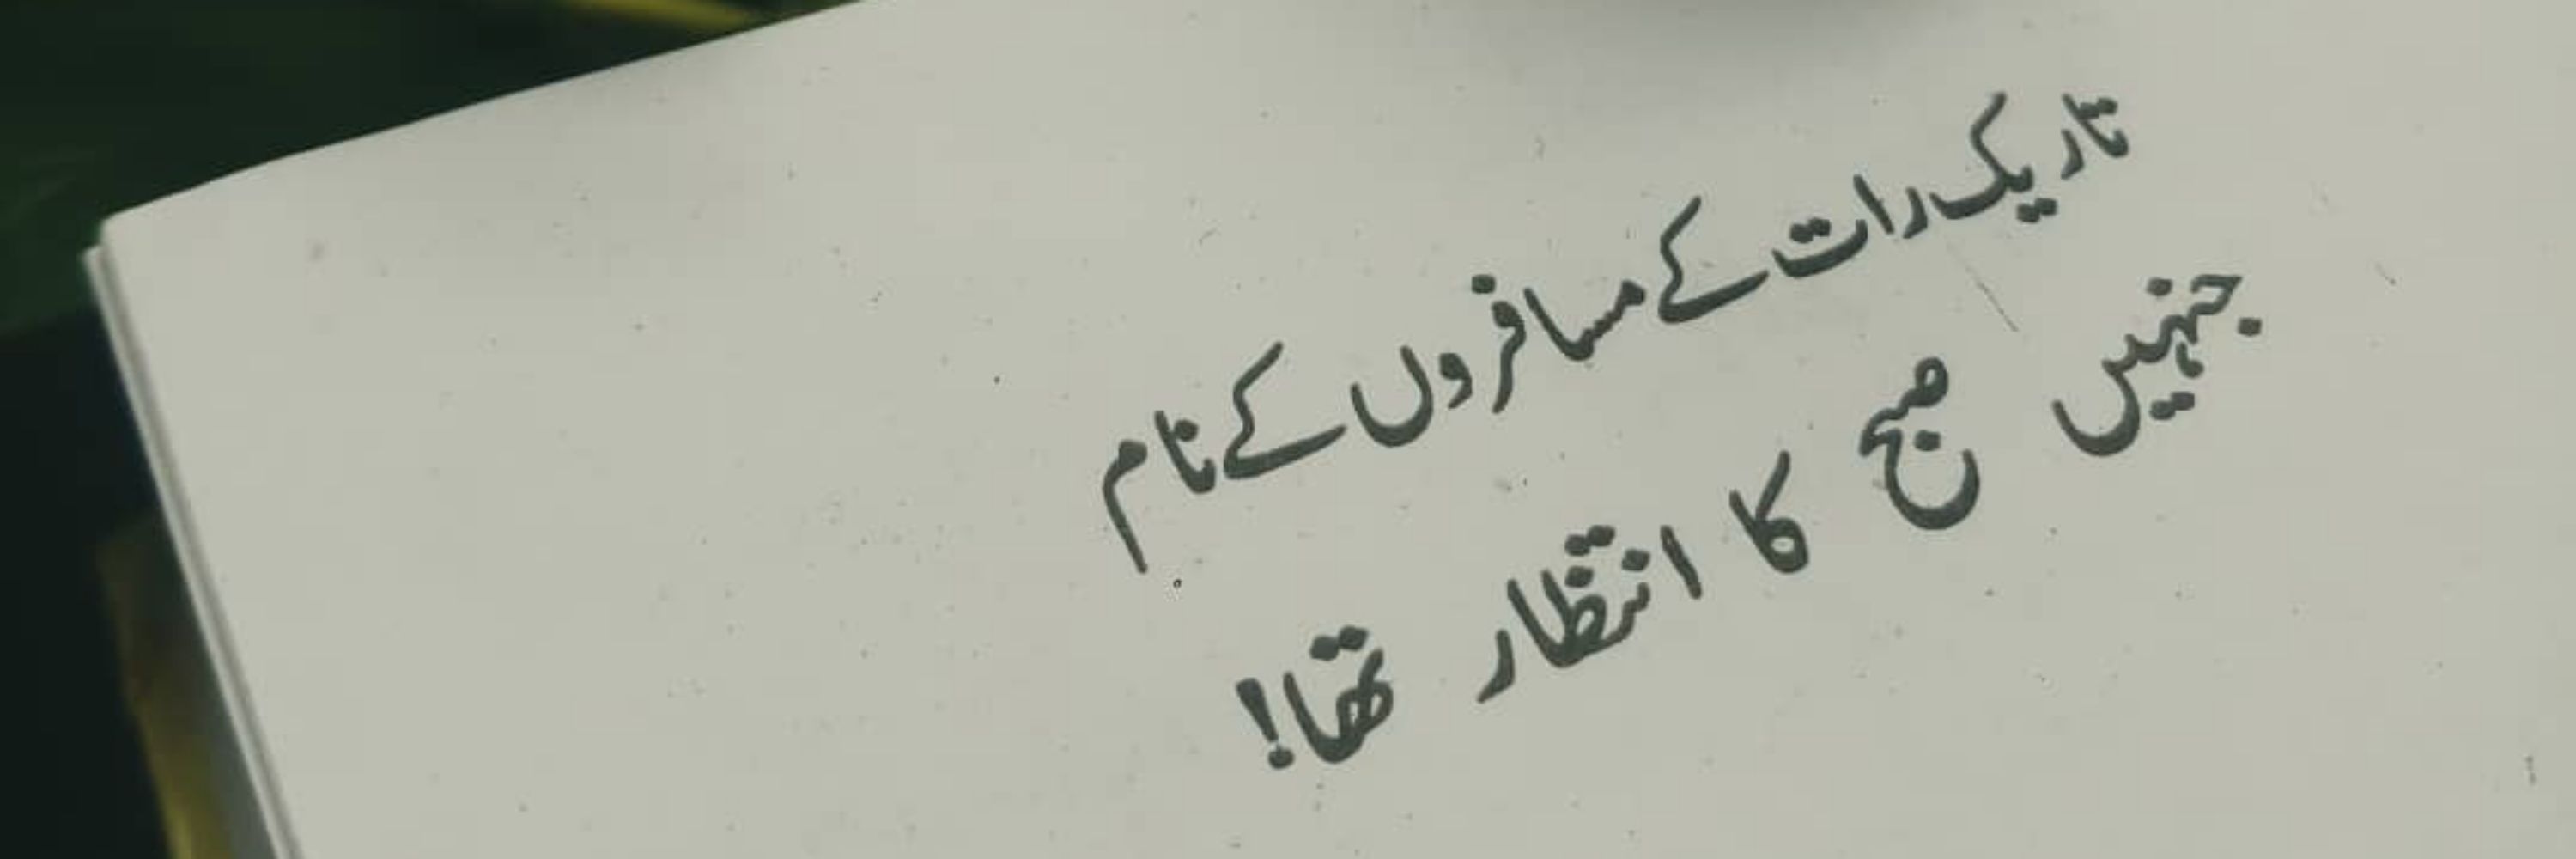 تاریک رات کے مسافروں کے نام
جنہیں صبح کا انتظار تھا!